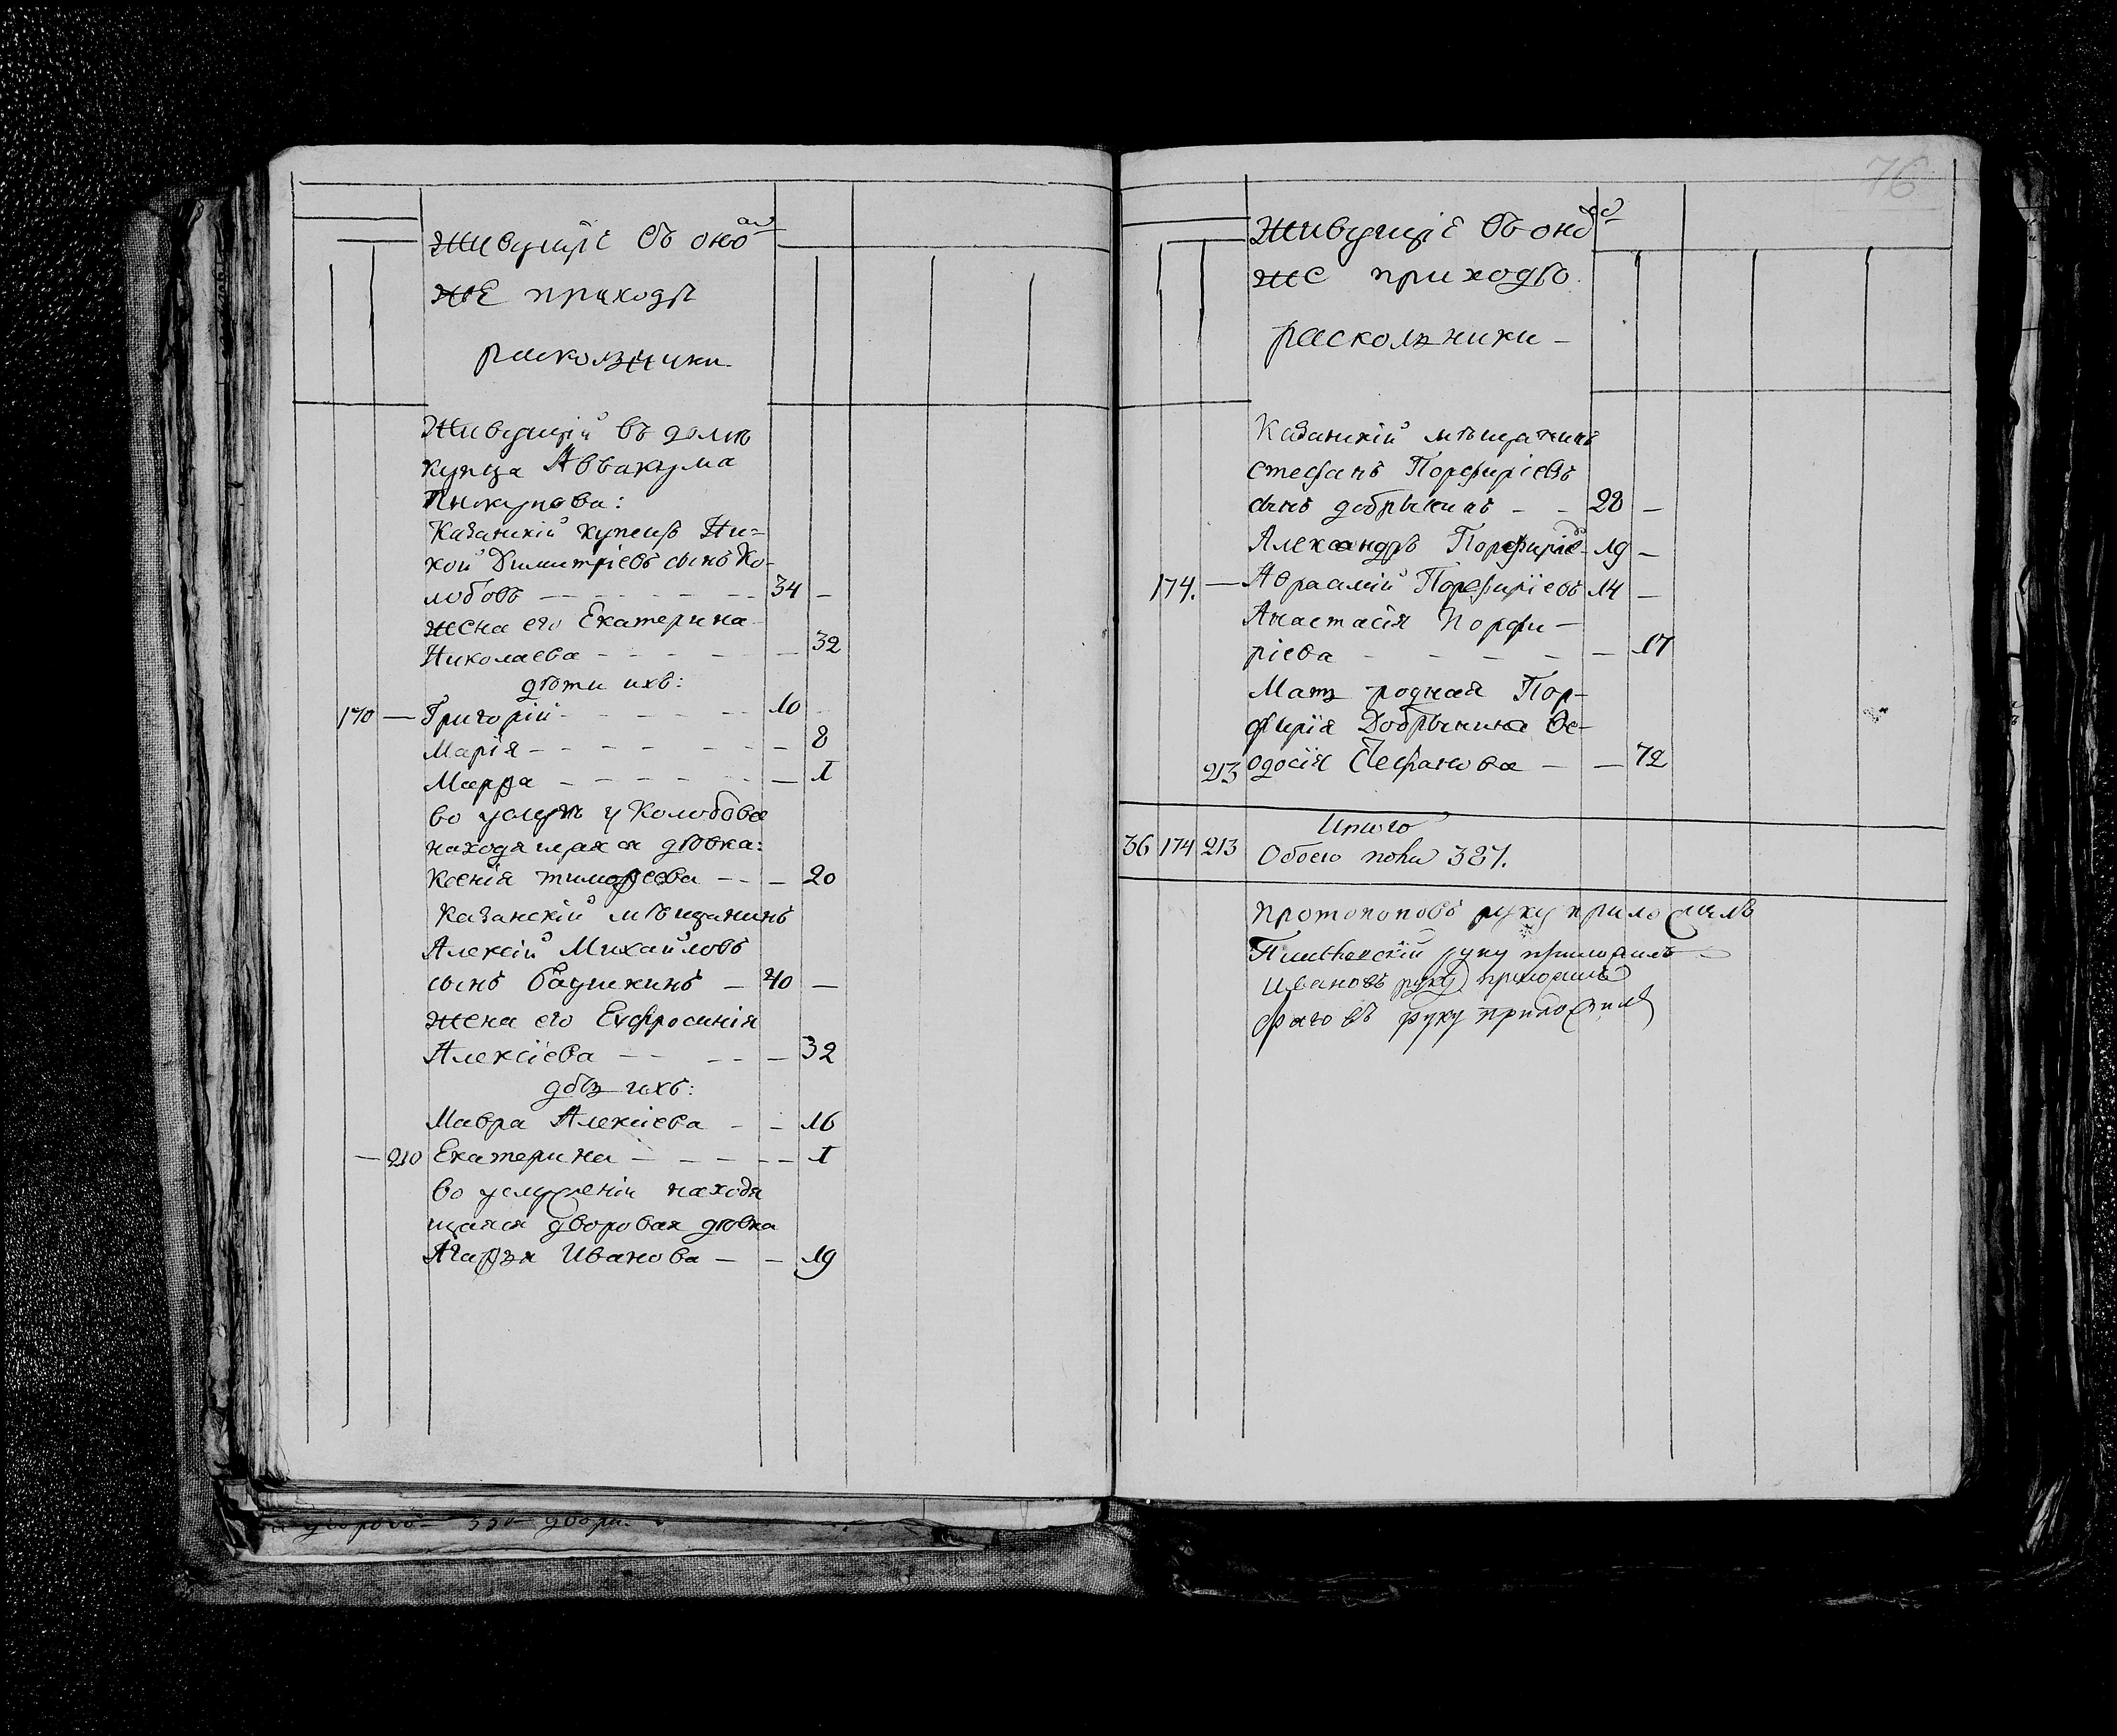 Живущіе въ оно
же приходѣ
раскольники.
Живущій въ домѣ
купца Аввакума
Казанскій купецъ Ни=
кой Димитріевъ сынъ Ко-
лобовъ — 34 —
жена его Екатерина
Николаева — 32
дѣти ихъ:
170 — Григорій — 10
Марія — 8
Марѳа — 1
во услугѣ у Колобова
находящаяся дѣвка:
Ксенія тимоѳеева — 20
Казанскій мѣщанинъ
Алексій Михайловъ
сынъ — 40 —
жена его Евфросинія
Алексіева — 32
ихъ:
Мавра Алексіева — 16
— 210 Екатерина — 1
во услуженіи находя
щаяся дворовая дѣвка
Агаѳья Иванова — 19
76
Живущіе въ оно
же приходѣ
раскольники —
Казанскій мѣщанинъ
стефанъ Порфиріевъ
сынъ добрынинъ — 28 —
Александръ Порфиріевъ 19 —
174. — Авраамій Порфиріевъ 14 —
Анастасія Порфи-
ріева — 17
Мать родная Пор-
фирія Добрынина Ѳе-
213 одосія Стефанова — 72
Итого
36 174 213 Обоего пола 387.
протопоповъ руку приложилъ
руку приложилъ
Ивановъ руку приложилъ
руку приложилъ